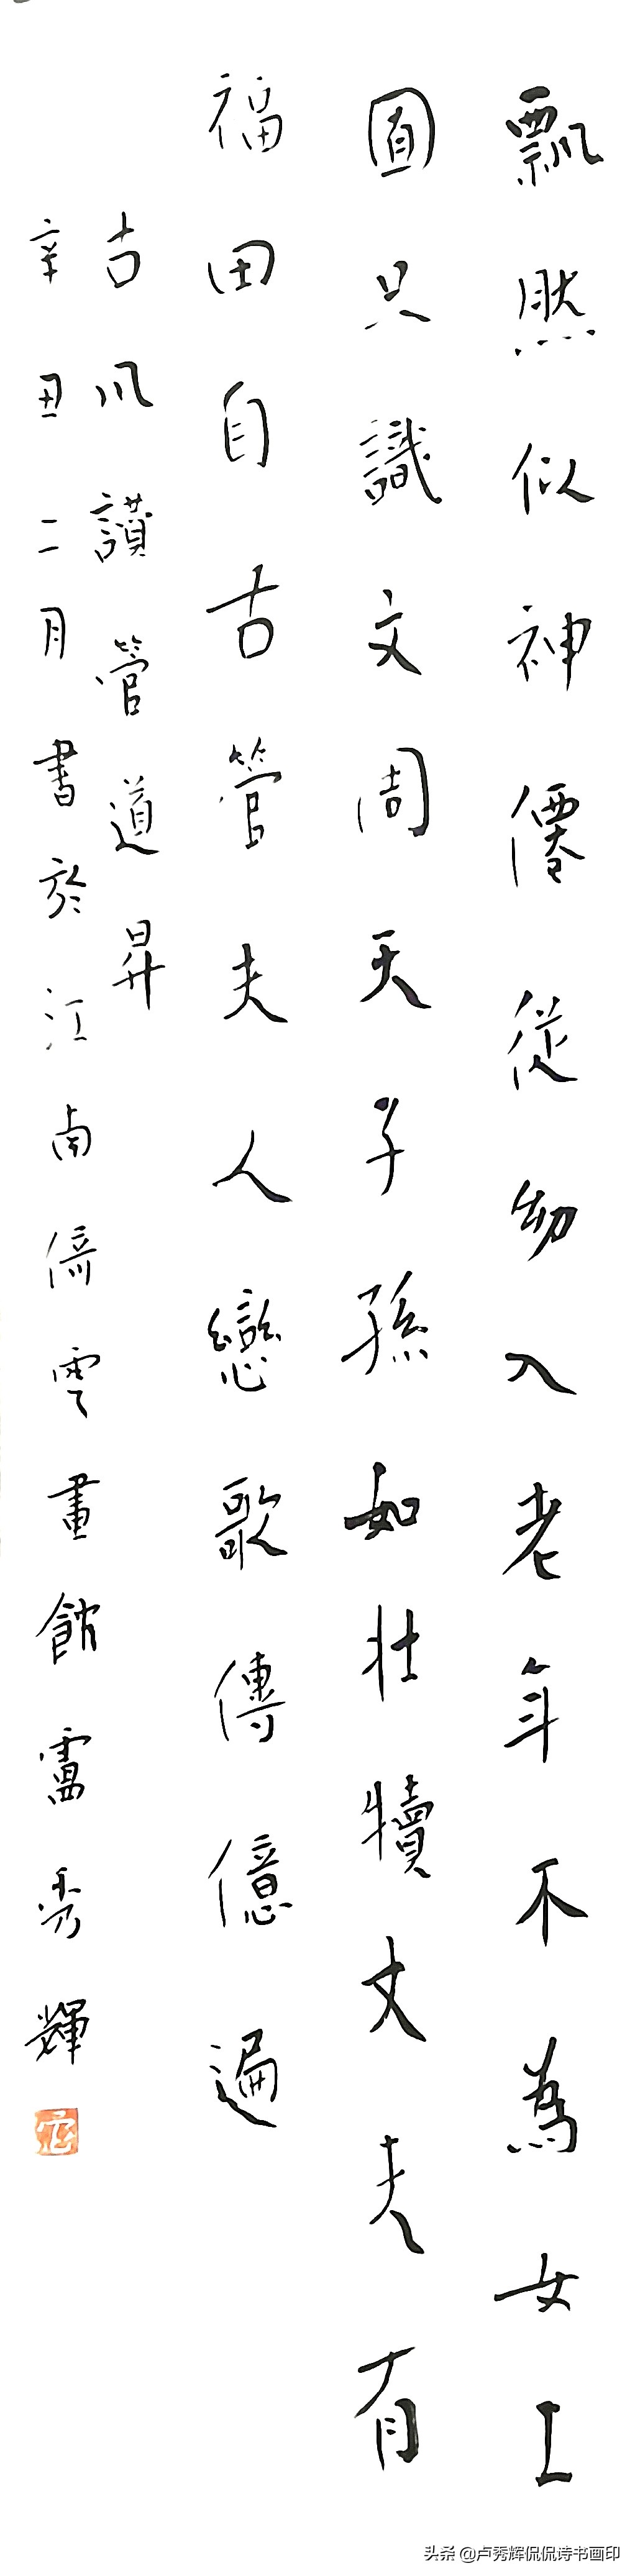 飄然似神僊從幼入老年不為女工
圓只識文周天子孫如壯犢丈夫有
福田自古管夫人戀歌傳億遍
古風讚管道昇
辛丑二月書於江南倚雲畫館盧秀輝
头条 @卢秀辉侃侃诗书画印